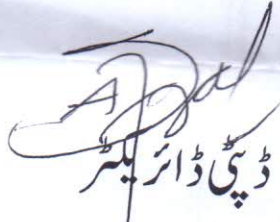 ڈپٹی ڈائریکٹر